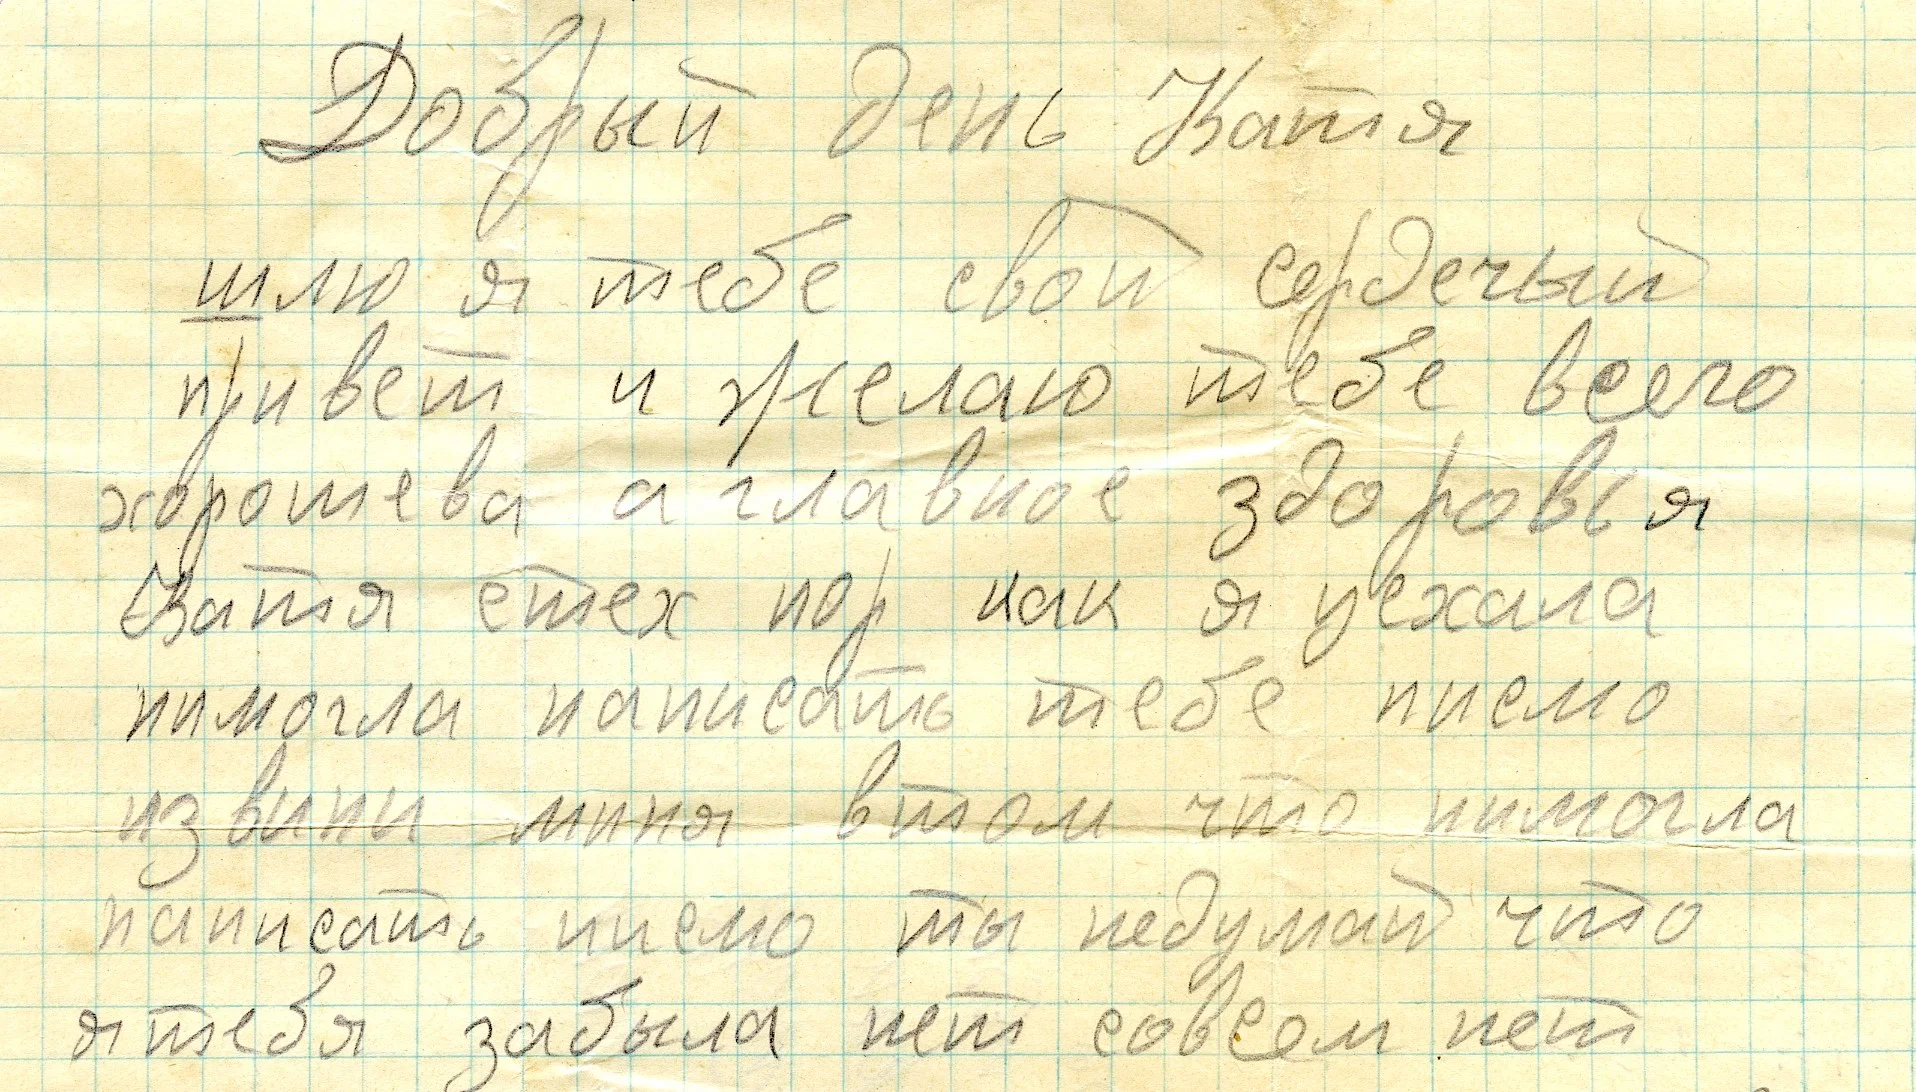 Добрый день Катя
шлю я тебе свой сердечый
привет и желаю тебе всего
хорошева а главное здоровья
Катя стех пор как я уехала
нимогла написать тебе писмо
извини миня втом что нимогла
написать писмо ты недумай что
я тебя забыла нет совсем нет